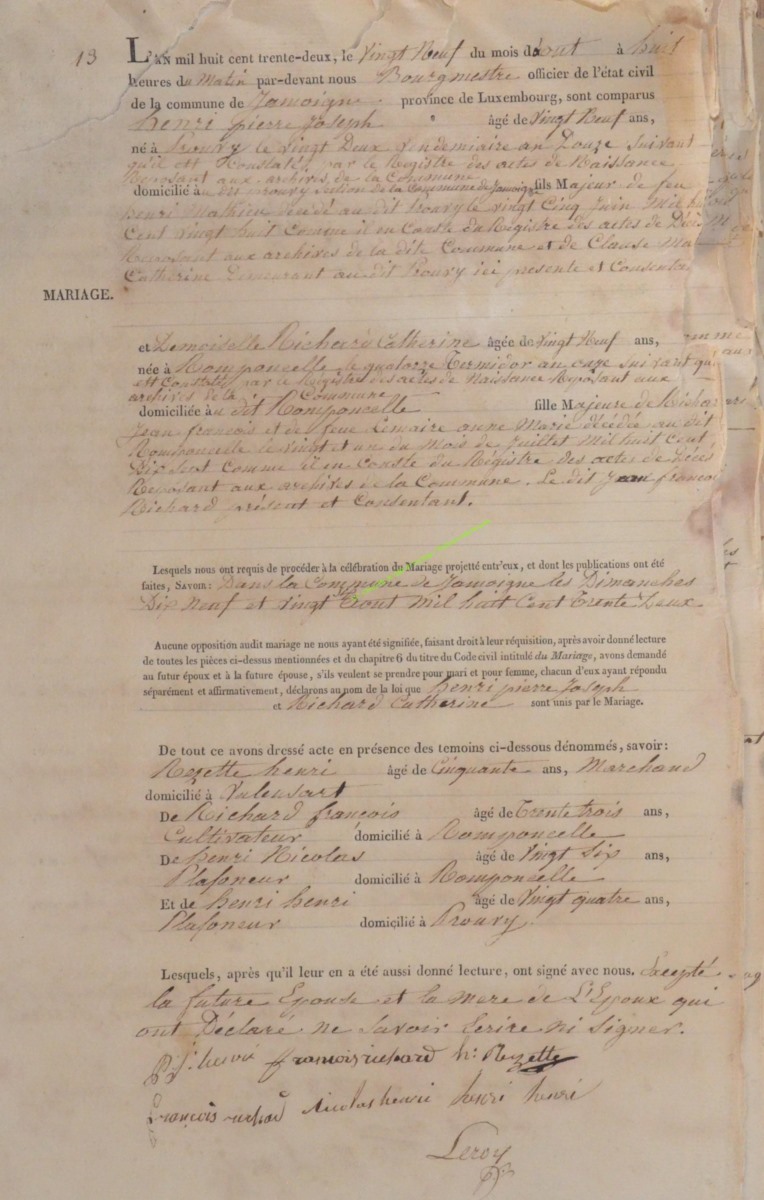 13
L'AN mil huit cent trente-deux, le Vingt Neuf du mois d'aout à huit
heures du Matin par-devant nous Bourgmestre officier de l'état civil
de la commune de Jamoigne province de Luxembourg, sont comparus
henri pierre Joseph âgé de Vingt Neuf ans,
né à Prouvy le vingt Deux Vendemiaire an Douze suivant
qu'il est Constaté par le Registre des actes de Naissance
Reposant aux archives de la Commune
domicilié à u dit Prouvy Section de la Commune de Jamoigne fils Majeur de feu
henri Mathieu décédé au dit Prouvy le vingt Cinq Juin Mil huit
Cent vingt huit Comme il en Conste du Registre des actes de Décès
Reposant aux archives de la dite Commune et de Clause
Catherine demeurant au dit Prouvy ici presente et Consentante
MARIAGE.
et Demoiselle Richard Catherine âgée de Vingt Neuf ans,
née à Romponcelle le quatorze Termidor an onze suivant qu'il
est Constaté par le Registre des actes de Naissance Reposant aux
archives de la Commune
domiciliée à u dit Romponcelle fille Majeure de Richard
Jean francois et de feue Lemaire anne Marie décédée au dit
Romponcelle le vingt et un du Mois de Juillet Mil huit Cent
Dix Sept Comme il en Conste du Régistre des actes de Décès
Reposant aux archives de la Commune. Le dit Jean francois
Richard présent et Consentant.
Lesquels nous ont requis de procéder à la célébration du Mariage projetté entr'eux, et dont les publications ont été
faites, SAVOIR: Dans la Commune de Jamoigne les Dimanches
Dix Neuf et vingt aout Mil huit Cent Trente Deux
Aucune opposition audit mariage ne nous ayant été signifiée, faisant droit à leur réquisition, après avoir donné lecture
de toutes les pièces ci-dessus mentionnées et du chapitre 6 du titre du Code civil intitulé du Mariage, avons demandé
au futur époux et à la future épouse, s'ils veulent se prendre pour mari et pour femme, chacun d'eux ayant répondu
séparément et affirmativement, déclarons au nom de la loi que henri pierre Joseph
et Richard Catherine sont unis par le Mariage.
De tout ce avons dressé acte en présence des temoins ci-dessous dénommés, savoir:
Rezette henri âgé de Cinquante ans, Marchand
domicilié à Valensart
De Richard françois âgé de Trente trois ans,
Cultivateur domicilié à Romponcelle
De henri Nicolas âgé de Vingt Six ans,
Plafoneur domicilié à Romponcelle
Et de henri henri âgé de Vingt quatre ans,
Plafoneur domicilié à Prouvy
Lesquels, après qu'il leur en a été aussi donné lecture, ont signé avec nous. Excepté
la future Epouse et la mere de L'Epoux qui
ont Déclaré ne Savoir Ecrire ni Signer.
P. J. henri francois richard h: Rezette
François richard Nicolas henri henri henri
Leroy